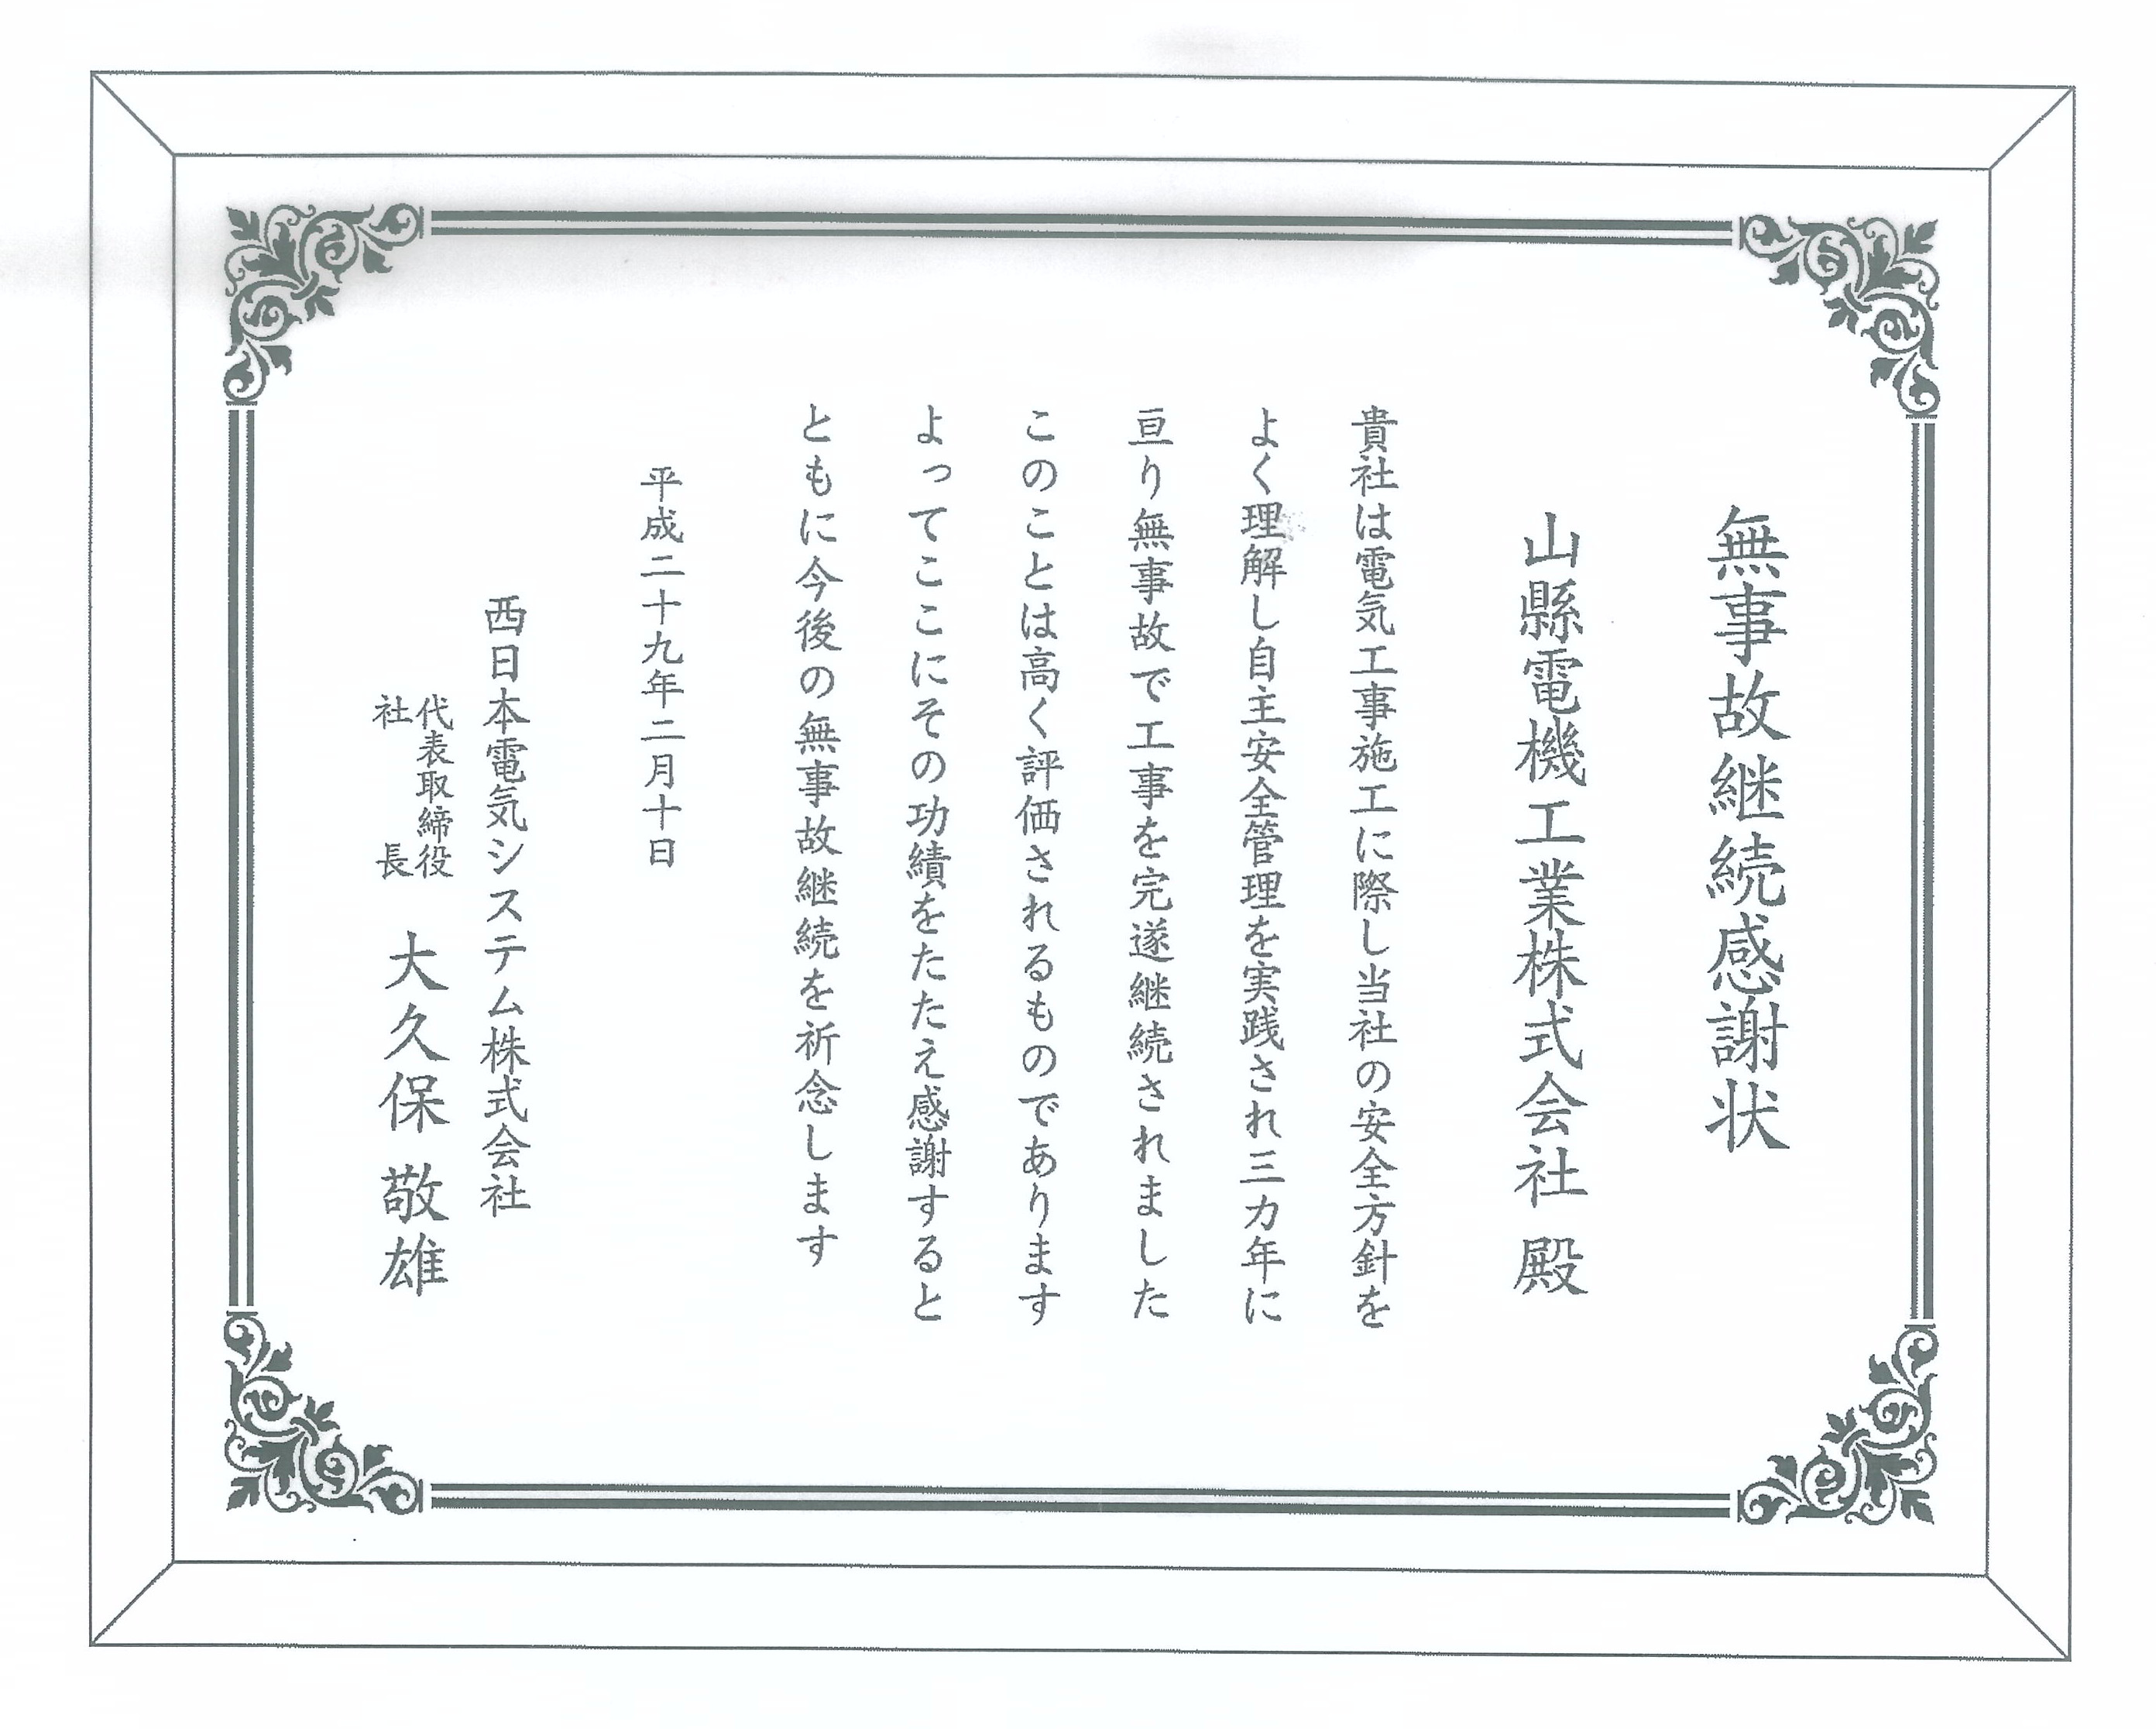 無事故継続感謝状
山縣電機工業株式会社 殿
貴社は電気工事施工に際し当社の安全方針を
よく理解し自主安全管理を実践され三カ年に
亘り無事故で工事を完遂継続されました
このことは高く評価されるものであります
よってここにその功績をたたえ感謝すると
ともに今後の無事故継続を祈念します
平成二十九年二月十日
西日本電気システム株式会社
代表取締役
社長 大久保 敬雄